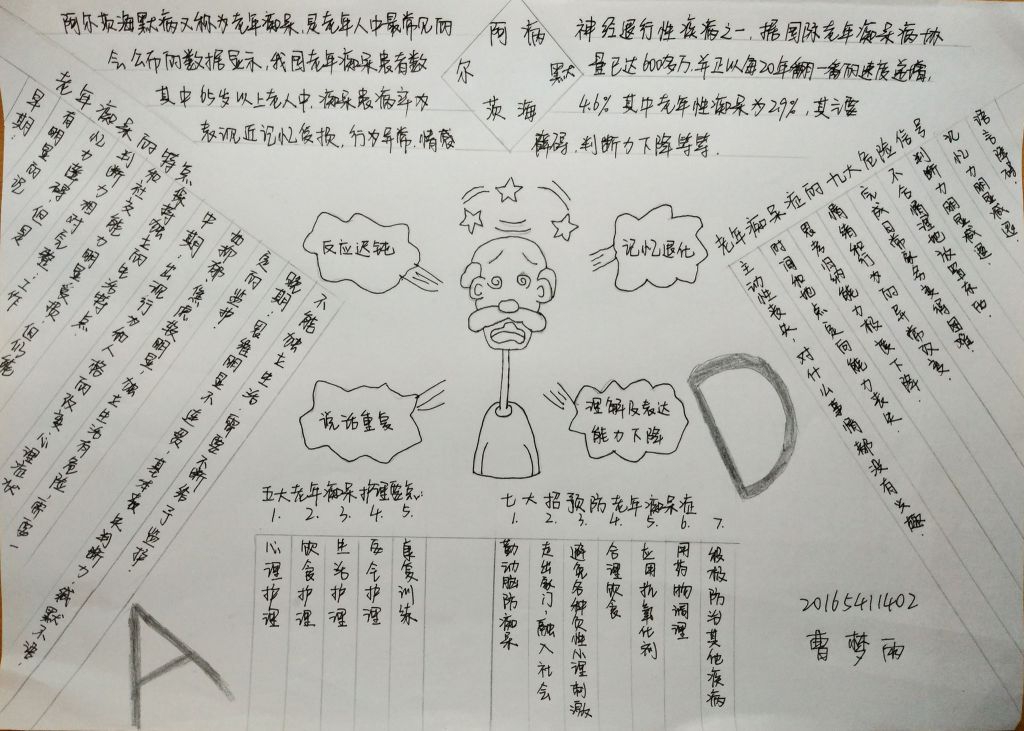 阿尔茨海默病
阿尔茨海默病又称为老年痴呆,是老年人中最常见的神经退行性疾病之一,据国际老年痴呆病协
会公布的数据显示,我国老年痴呆患者数量已达600多万,并正以每20年翻一番的速度递增,
其中65岁以上老人中,痴呆患病率为4.6%其中老年性痴呆为2.9%,其主要
表现近记忆缺损,行为异常,情感障碍,判断力下降等等.
老年痴呆的特点
早期:
有明显的记忆力障碍,
但是判断力相对完整;
工作和社交能力明显衰退
但仍能保持独立的生活
中期:
抑郁 焦虑
独立生活有危险,需要一
度的监护.
晚期:思维明显不连贯,基本丧失判断力,缄默不语;
不能独立生活,需要不断给予监护.
反应迟钝
记忆退化
说话重复
理解及表达
能力下降
老年痴呆症的九大危险信号
语言障碍.
记忆力明显减退.
判断力明显减退
不合情理地放置东西
完成日常家务变得困难.
情绪和行为的异常改变.
思考归纳能力极度下降.
时间和地点定向能力丧失.
主动性丧失,对什么事情都没有兴趣.
D
五大老年痴呆护理要点:
1. 心理护理
2. 饮食护理
3. 生活护理
4. 安全护理
5. 康复训练
七大招预防老年痴呆症
1. 勤动脑防痴呆
2. 走出家门,融入社会
3. 避免各种负性心理刺激
4. 合理饮食
5. 应用抗氧化剂
6. 用药物调理
7. 积极防治其他疾病
A
20165411402
曹梦雨